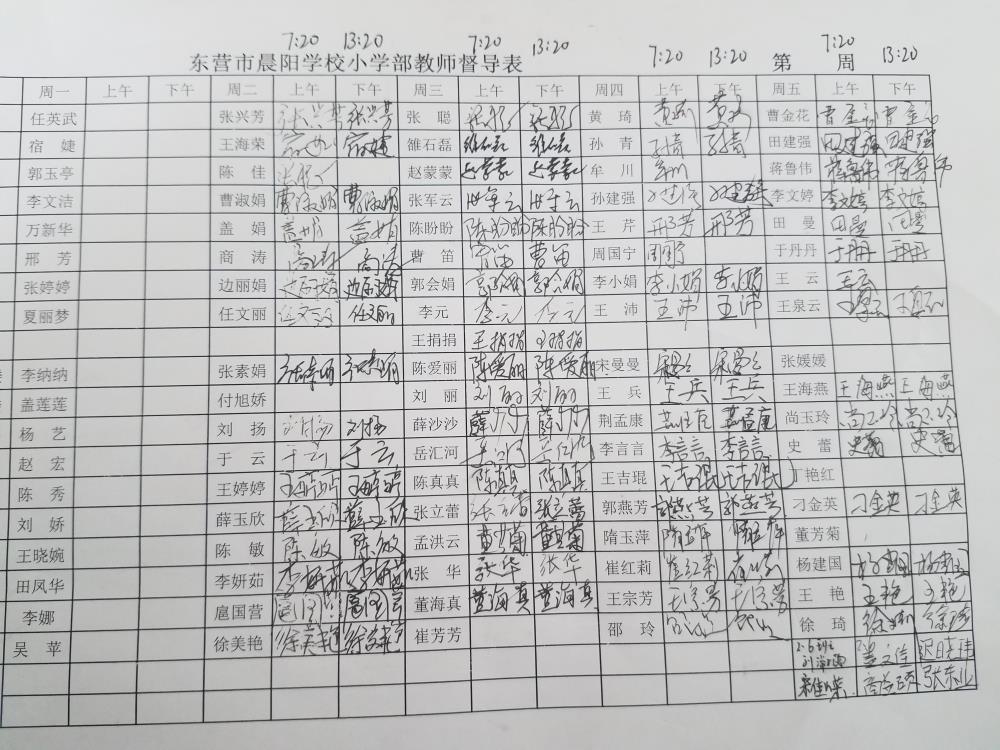 7:20 13:20 7:20 13:20 7:20 13:20 7:20 13:20
东营市晨阳学校小学部教师督导表 第 周
周一 上午 下午 周二 上午 下午 周三 上午 下午 周四 上午 下午 周五 上午 下午
任英武 张兴芳 张兴芳 张兴芳 张聪 张聪 张聪 黄琦 黄琦 曹金花 曹金花 曹金花
宿婕 王海荣 雒石磊 雒石磊 雒石磊 孙青 孙青 孙青 田建强 田建强 田建强
郭玉亭 陈佳 赵蒙蒙 赵蒙蒙 赵蒙蒙 牟川 牟川 蒋鲁伟 蒋鲁伟 蒋鲁伟
李文洁 曹淑娟 曹淑娟 曹淑娟 张军云 张军云 张军云 孙建强 孙建强 孙建强 李文婷 李文婷 李文婷
万新华 盖娟 盖娟 盖娟 陈盼盼 陈盼盼 陈盼盼 王芹 邢芳 邢芳 田曼 田曼 田曼
邢芳 商涛 商涛 商涛 曹笛 曹笛 曹笛 周国宁 周国宁 于丹丹 于丹丹 于丹丹
张婷婷 边丽娟 边丽娟 郭会娟 郭会娟 郭会娟 李小娟 李小娟 李小娟 王云 王云
夏丽梦 任文丽 任文丽 任文丽 李元 李元 李元 王沛 王沛 王沛 王泉云 王泉云 王泉云
王捐捐 王捐捐 王捐捐
李纳纳 张素娟 张素娟 张素娟 陈爱丽 陈爱丽 陈爱丽 宋曼曼 宋曼曼 宋曼曼 张媛媛
盖莲莲 付旭娇 刘丽 刘丽 刘丽 王兵 王兵 王兵 王海燕 王海燕 王海燕
杨艺 刘扬 刘扬 刘扬 薛沙沙 薛沙沙 薛沙沙 荆孟康 荆孟康 尚玉玲 尚玉玲 尚玉玲
赵宏 于云 于云 于云 岳汇河 李言言 李言言 李言言 史蕾 史蕾 史蕾
陈秀 王婷婷 王婷婷 王婷婷 陈真真 陈真真 陈真真 王吉琨 王吉琨 王吉琨 丁艳红
刘娇 薛玉欣 薛玉欣 薛玉欣 张立蕾 张立蕾 张立蕾 郭燕芳 郭燕芳 郭燕芳 刁金英 刁金英 刁金英
王晓婉 陈敏 陈敏 陈敏 孟洪云 董芳菊 董芳菊 隋玉萍 隋玉萍 隋玉萍 董芳菊
田凤华 李妍茹 李妍茹 李妍茹 张华 张华 张华 崔红莉 崔红莉 崔红莉 杨建国 杨建国 杨建国
李娜 扈国营 扈国营 扈国营 董海真 董海真 董海真 王宗芳 王宗芳 王宗芳 王艳 王艳 王艳
吴苹 徐美艳 徐美艳 徐美艳 崔芳芳 邵玲 邵玲 徐琦 徐琦 徐琦
2.6班
张东业